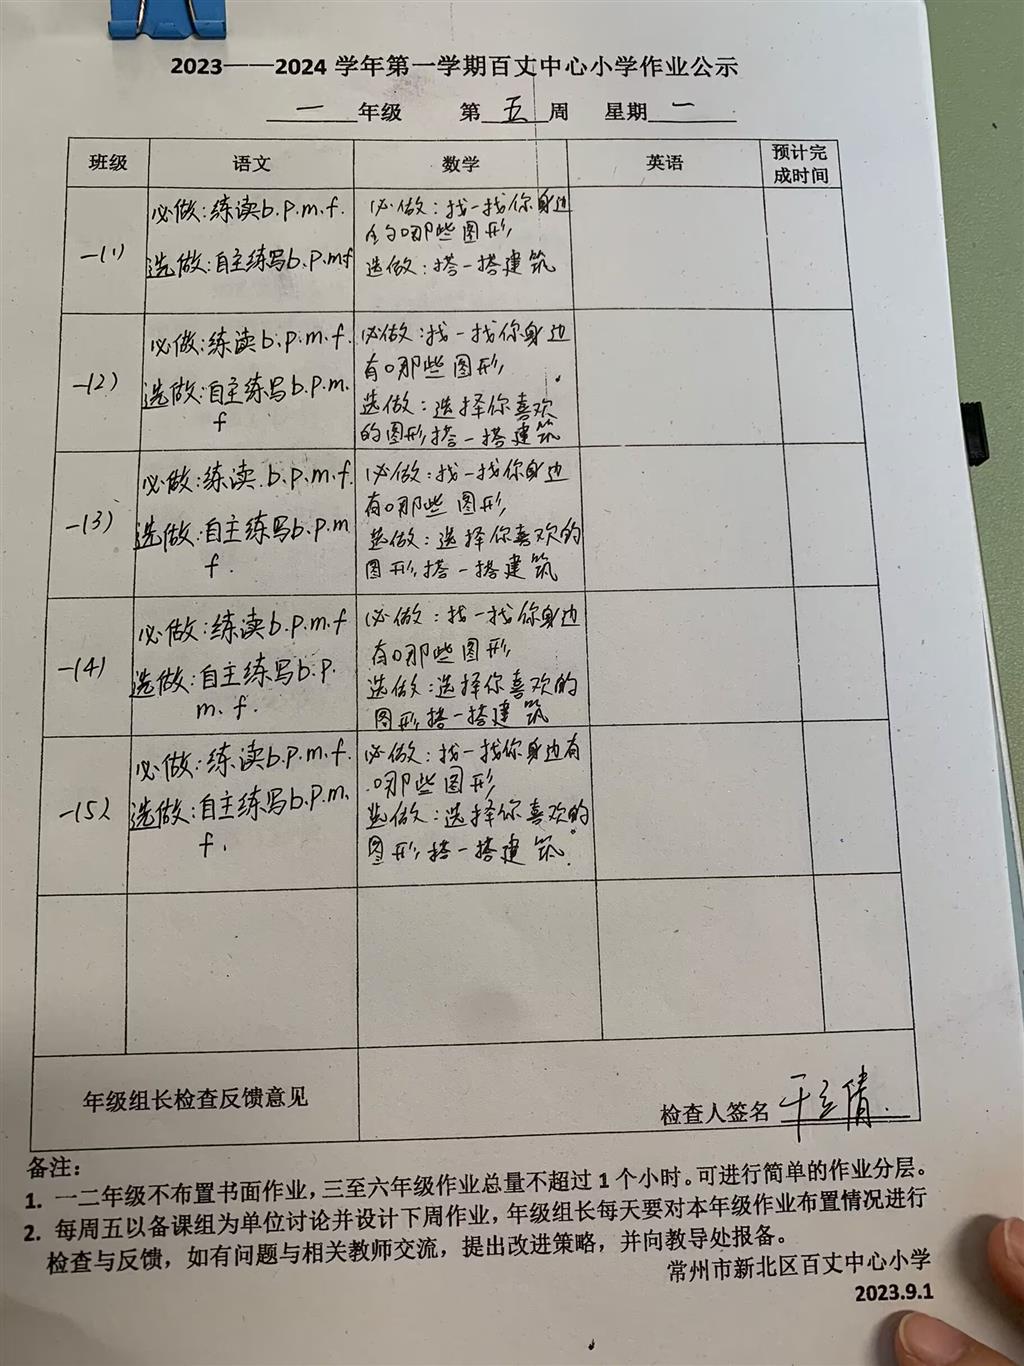 2023——2024 学年第一学期百丈中心小学作业公示
一 年级 第 五 周 星期 一
班级 语文 数学 英语 预计完
成时间
一(1)
必做:练读b.p.m.f.
选做:自主练写b.p.m.f
必做:找一找你身边
的哪些图形
选做:搭一搭建筑
一(2)
必做:练读b.p.m.f.
选做:自主练写b.p.m.
f
必做:找一找你身边
有哪些图形
选做:选择你喜欢
的图形,搭一搭建筑
一(3)
必做:练读.b.p.m.f.
选做:自主练写b.p.m
f.
必做:找一找你身边
有哪些图形
选做:选择你喜欢的
图形,搭一搭建筑
一(4)
必做:练读b.p.m.f
选做:自主练写b.p.
m.f.
必做:找一找你身边
有哪些图形
选做:选择你喜欢的
图形,搭一搭建筑
一(5)
必做:练读b.p.m.f.
选做:自主练写b.p.m.
f.
必做:找一找你身边有
哪些图形
选做:选择你喜欢的
图形,搭一搭建筑.
年级组长检查反馈意见
检查人签名
备注:
1. 一二年级不布置书面作业,三至六年级作业总量不超过 1 个小时。可进行简单的作业分层。
2. 每周五以备课组为单位讨论并设计下周作业,年级组长每天要对本年级作业布置情况进行
检查与反馈,如有问题与相关教师交流,提出改进策略,并向教导处报备。
常州市新北区百丈中心小学
2023.9.1